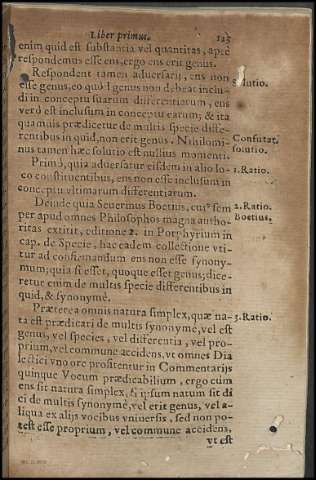 Liber primus. 123
enim quid est substantia vel quantitas, aptè
respondemus esse ens, ergo ens erit genus.
Respondent tamen adversarij, ens non
esse genus, eo quòd genus non debeat inclu-
di in conceptu suarum differentiarum, ens
verò est inclusum in conceptu earum; & ita
quamuis prædicetur de multis specie diffe-
rentibus in quid, non erit genus. Nihilomi-
nus tamen hæc solutio est nullius momenti.
Primò, quia adversatur eisdem in alio lo-
co constituentibus, ens non esse inclusum in
conceptu vltimarum differentiarum.
Deinde quia Seuerinus Boetius, cuiꝰ sem
per apud omnes Philosophos magna autho-
ritas extitit, editione 2. in Porphyrium in
cap. de Specie, hac eadem collectione vti-
tur ad confirmandum ens non esse synony-
mum; quia si esset, quoque esset genus; dice-
retur enim de multis specie differentibus in
quid, & synonymè.
Præterea omnis natura simplex, quæ na-
ta est prædicari de multis synonymè, vel est
genus, vel species, vel differentia, vel pro-
prium, vel commune accidens, vt omnes Dia
lectici vno ore profitentur in Commentarijs
quinque Vocum prædicabilium, ergo cùm
ens sit natura simplex, si ipsum natum sit di
ci de multis synonymè, vel erit genus, vel a-
liqua ex alijs vocibus vniuersis, sed non po-
test esse proprium, vel commune accidens,
vt est
Solutio.
Confutat.
solutio.
1. Ratio.
2. Ratio.
Boetius.
3. Ratio.